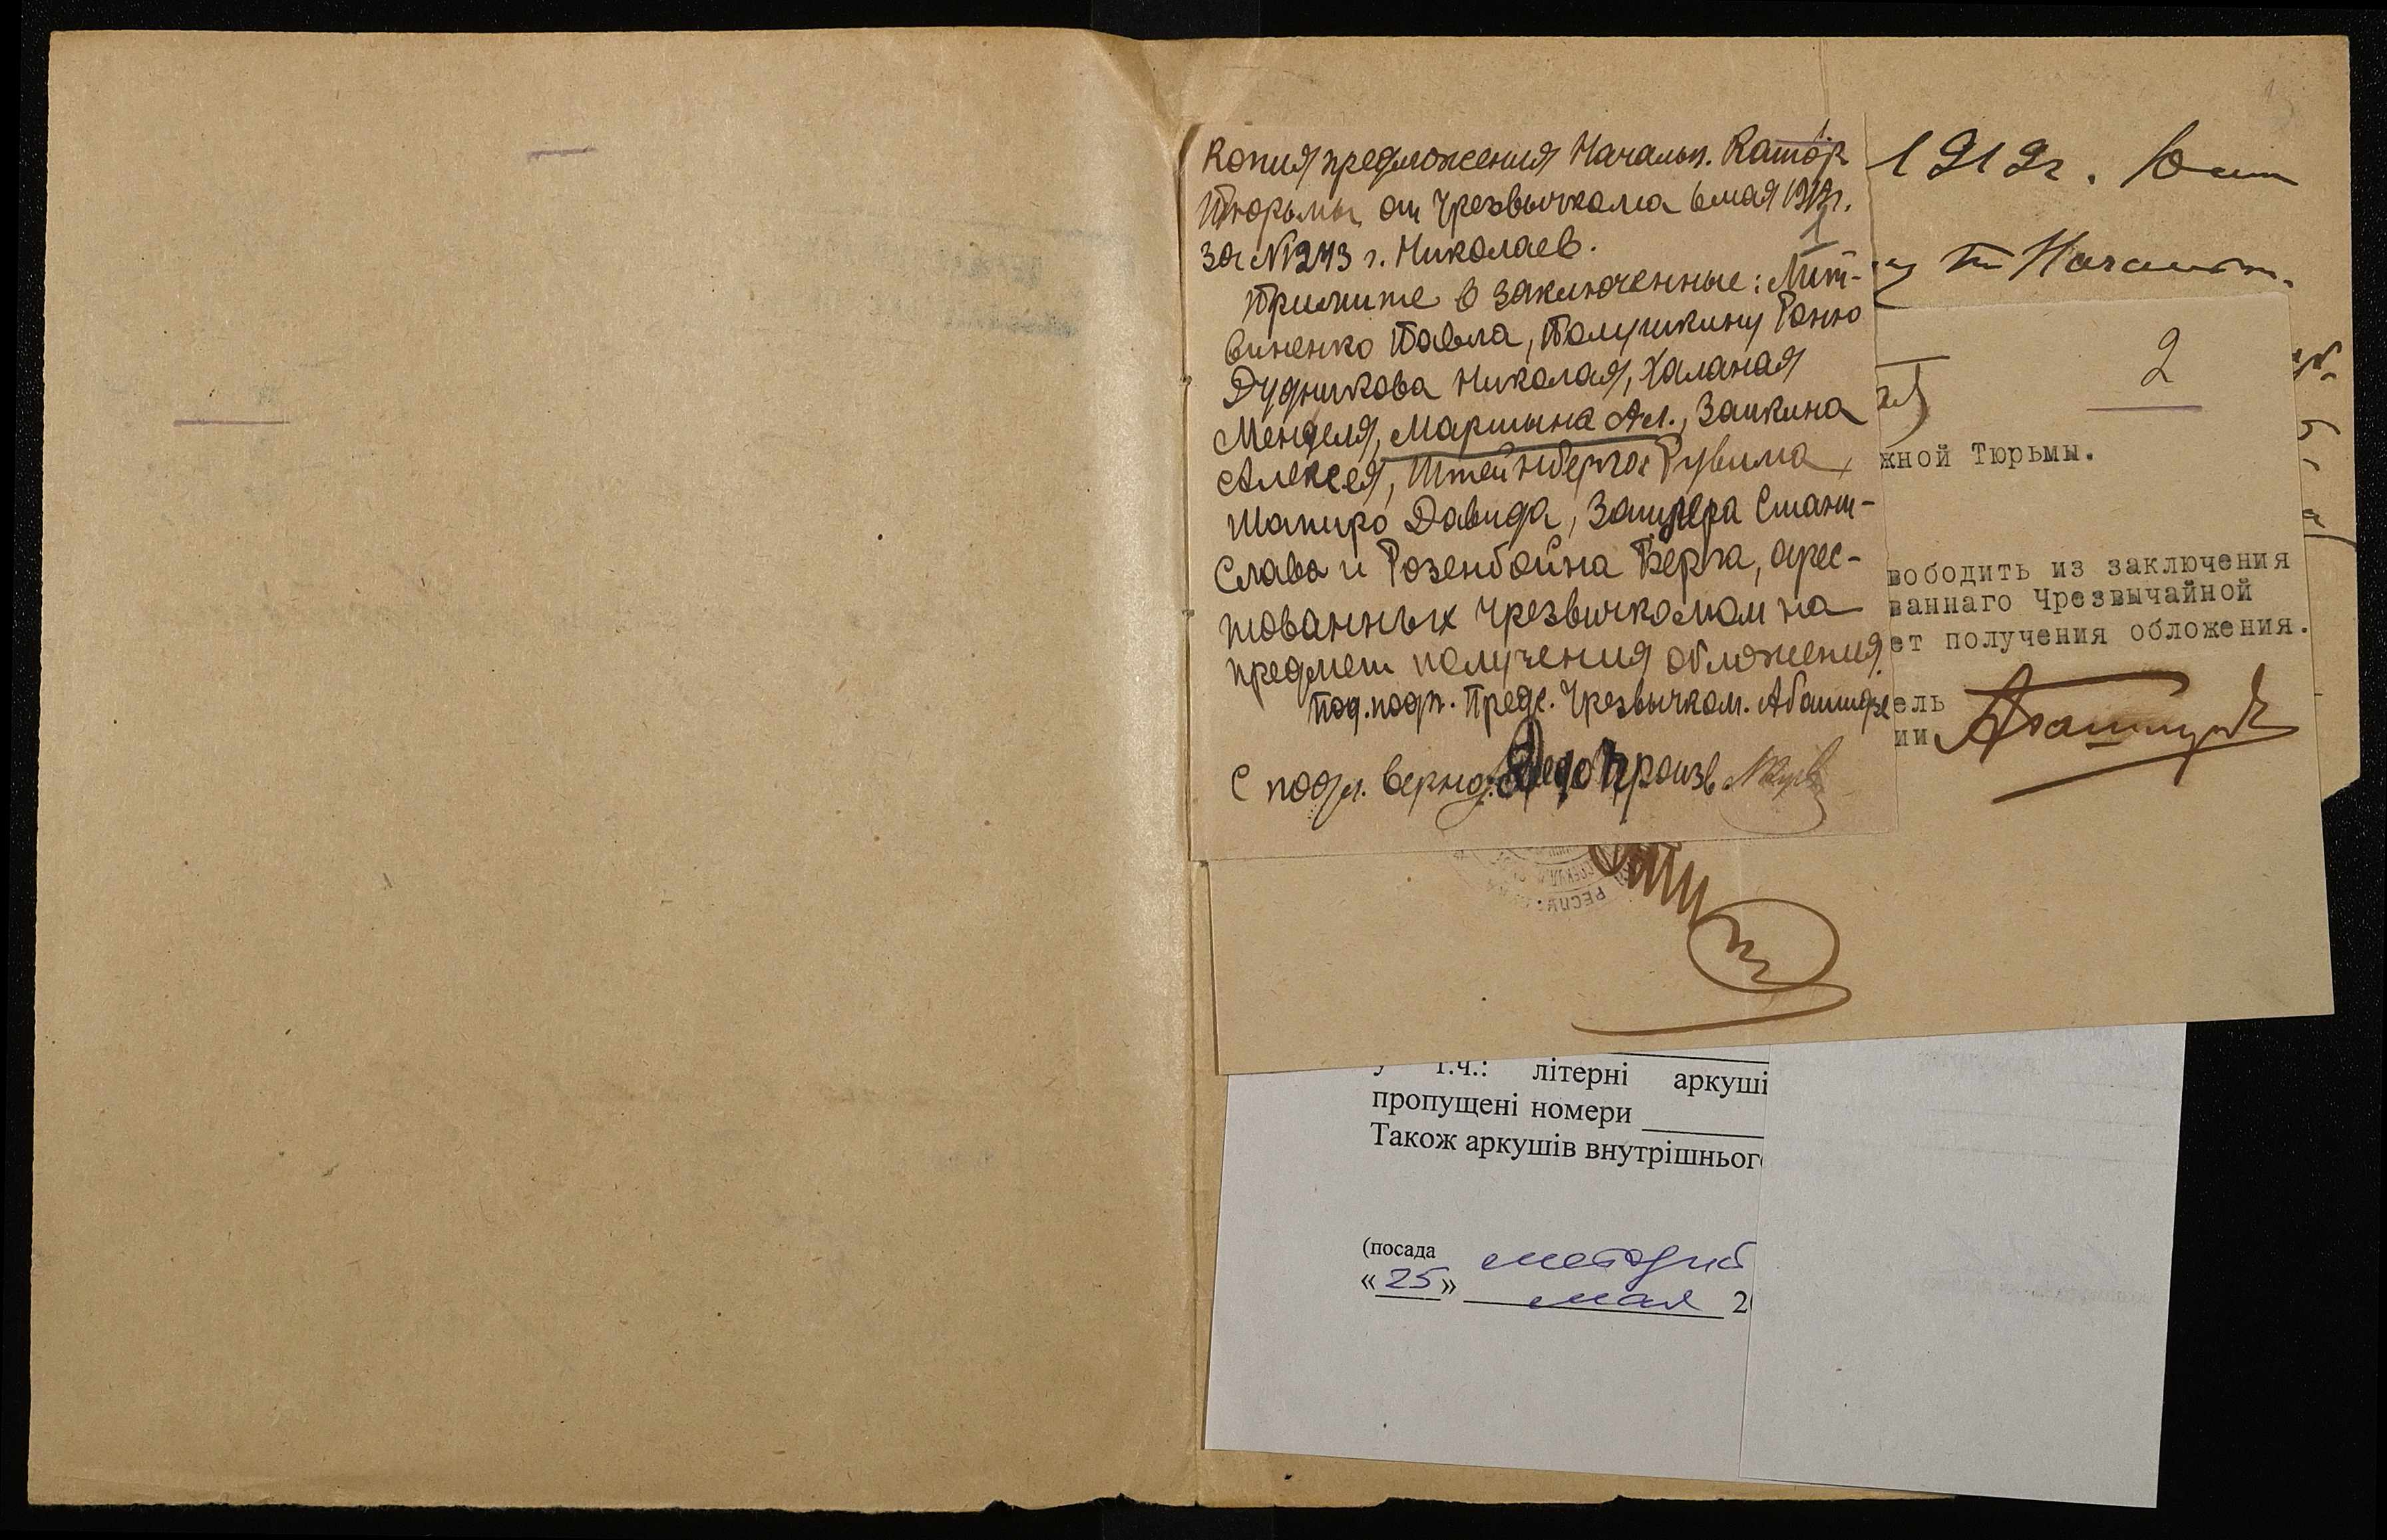 Копия предложения Начальн. Катор
Тюрьмы от Чрезвычкома 6 мая 1919г.
за №1243 г. Николаев.
1
Примите в заключенные: Лит-
виненко Павла, Полушкину Раню
Дудникова Николая, Халаная
Менделя, Мартына Ал., Заикина
Алексея, Штейнберга Рувима,
Шапиро Давида, Зангера Стани-
слава и Розенбойна Берка, арес-
тованных Чрезвычкомом на
предмет получения обложения.
Под. подп. Предс. Чрезвычком. Абашидзе
С подл. верно: Делопроизв
1919г.
Начальн.
2
жной Тюрьмы.
вободить из заключения
ваннаго Чрезвычайной
ет получения обложения.
ель
ии Абашидзе
РЕСПУ
у т.ч.: літерні аркуші
пропущені номери
Також аркушів внутрішньог
(посада методист
«25» мая 2